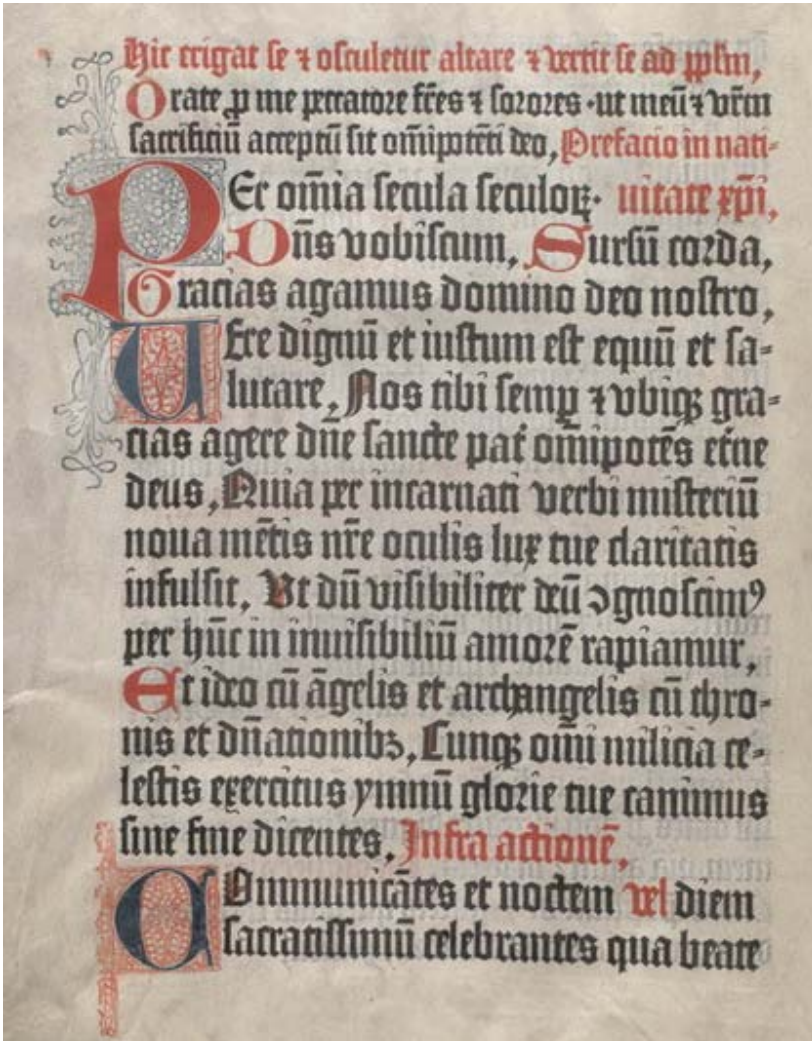 Hic erigat se ⁊ osculetur altare ⁊ vertit se ad ppl̄m,
Orate ꝓ me peccatore fr̄es ⁊ sorores · ut meū ⁊ vr̄m
sacrificiū acceptū sit om̄ipotēti deo, Prefacio in nati-
PEr om̄ia secula seculoꝝ· uitate xp̄i,
Dn̄s vobiscum, Sursū corda,
Gracias agamus domino deo nostro,
VEre dignū et iustum est equū et sa-
lutare, Nos tibi semꝑ ⁊ vbiqꝫ gra-
cias agere dn̄e sancte pat̄ om̄ipotēs et̄ne
deus, Quia per incarnati verbi misteriū
noua mētis nr̄e oculis lux tue claritatis
infulsit, Vt dū visibiliter deū ↄgnoscimꝰ
per hūc in inuisibiliū amorē rapiamur,
Et ideo cū āgelis et archangelis cū thro-
nis et dn̄ationibꝫ, Cunqꝫ om̄i milicia ce-
lestis exercitus ymnū glorie tue canimus
sine fine dicentes, Infra actionē,
COmmunicātes et noctem vel diem
sacratissimū celebrantes qua beate